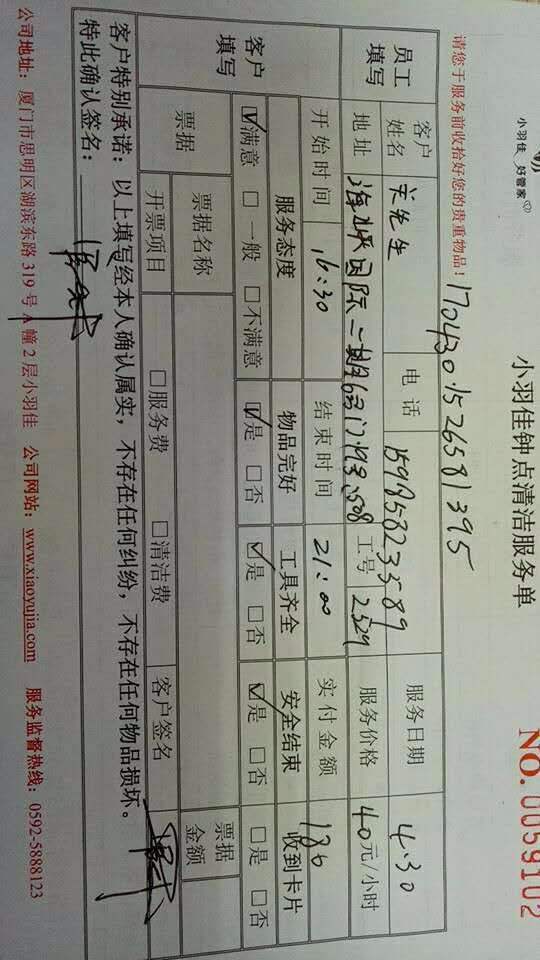 小羽佳 好管家
小羽佳钟点清洁服务单
NO. 0059102
请您于服务前收拾好您的贵重物品！
170430.1526581395
员工填写 客户姓名 关先生 电话 服务日期 4.30
地址 国际二期 工号 2529 服务价格 40元/小时
开始时间 16:30 结束时间 21:00 实付金额 186
客户填写 服务态度 物品完好 工具齐全 安全结束 收到卡片
☑满意 □一般 □不满意 ☑是 □否 ☑是 □否 ☑是 □否 □是 □否
票据 票据名称 票据金额
开票项目 □服务费 □清洁费 客户签名
客户特别承诺：以上填写经本人确认属实，不存在任何纠纷，不存在任何物品损坏。
特此确认签名：
公司地址：厦门市思明区湖滨东路319号A幢2层小羽佳 公司网站：www.xiaoyujia.com 服务监督热线：0592-5888123